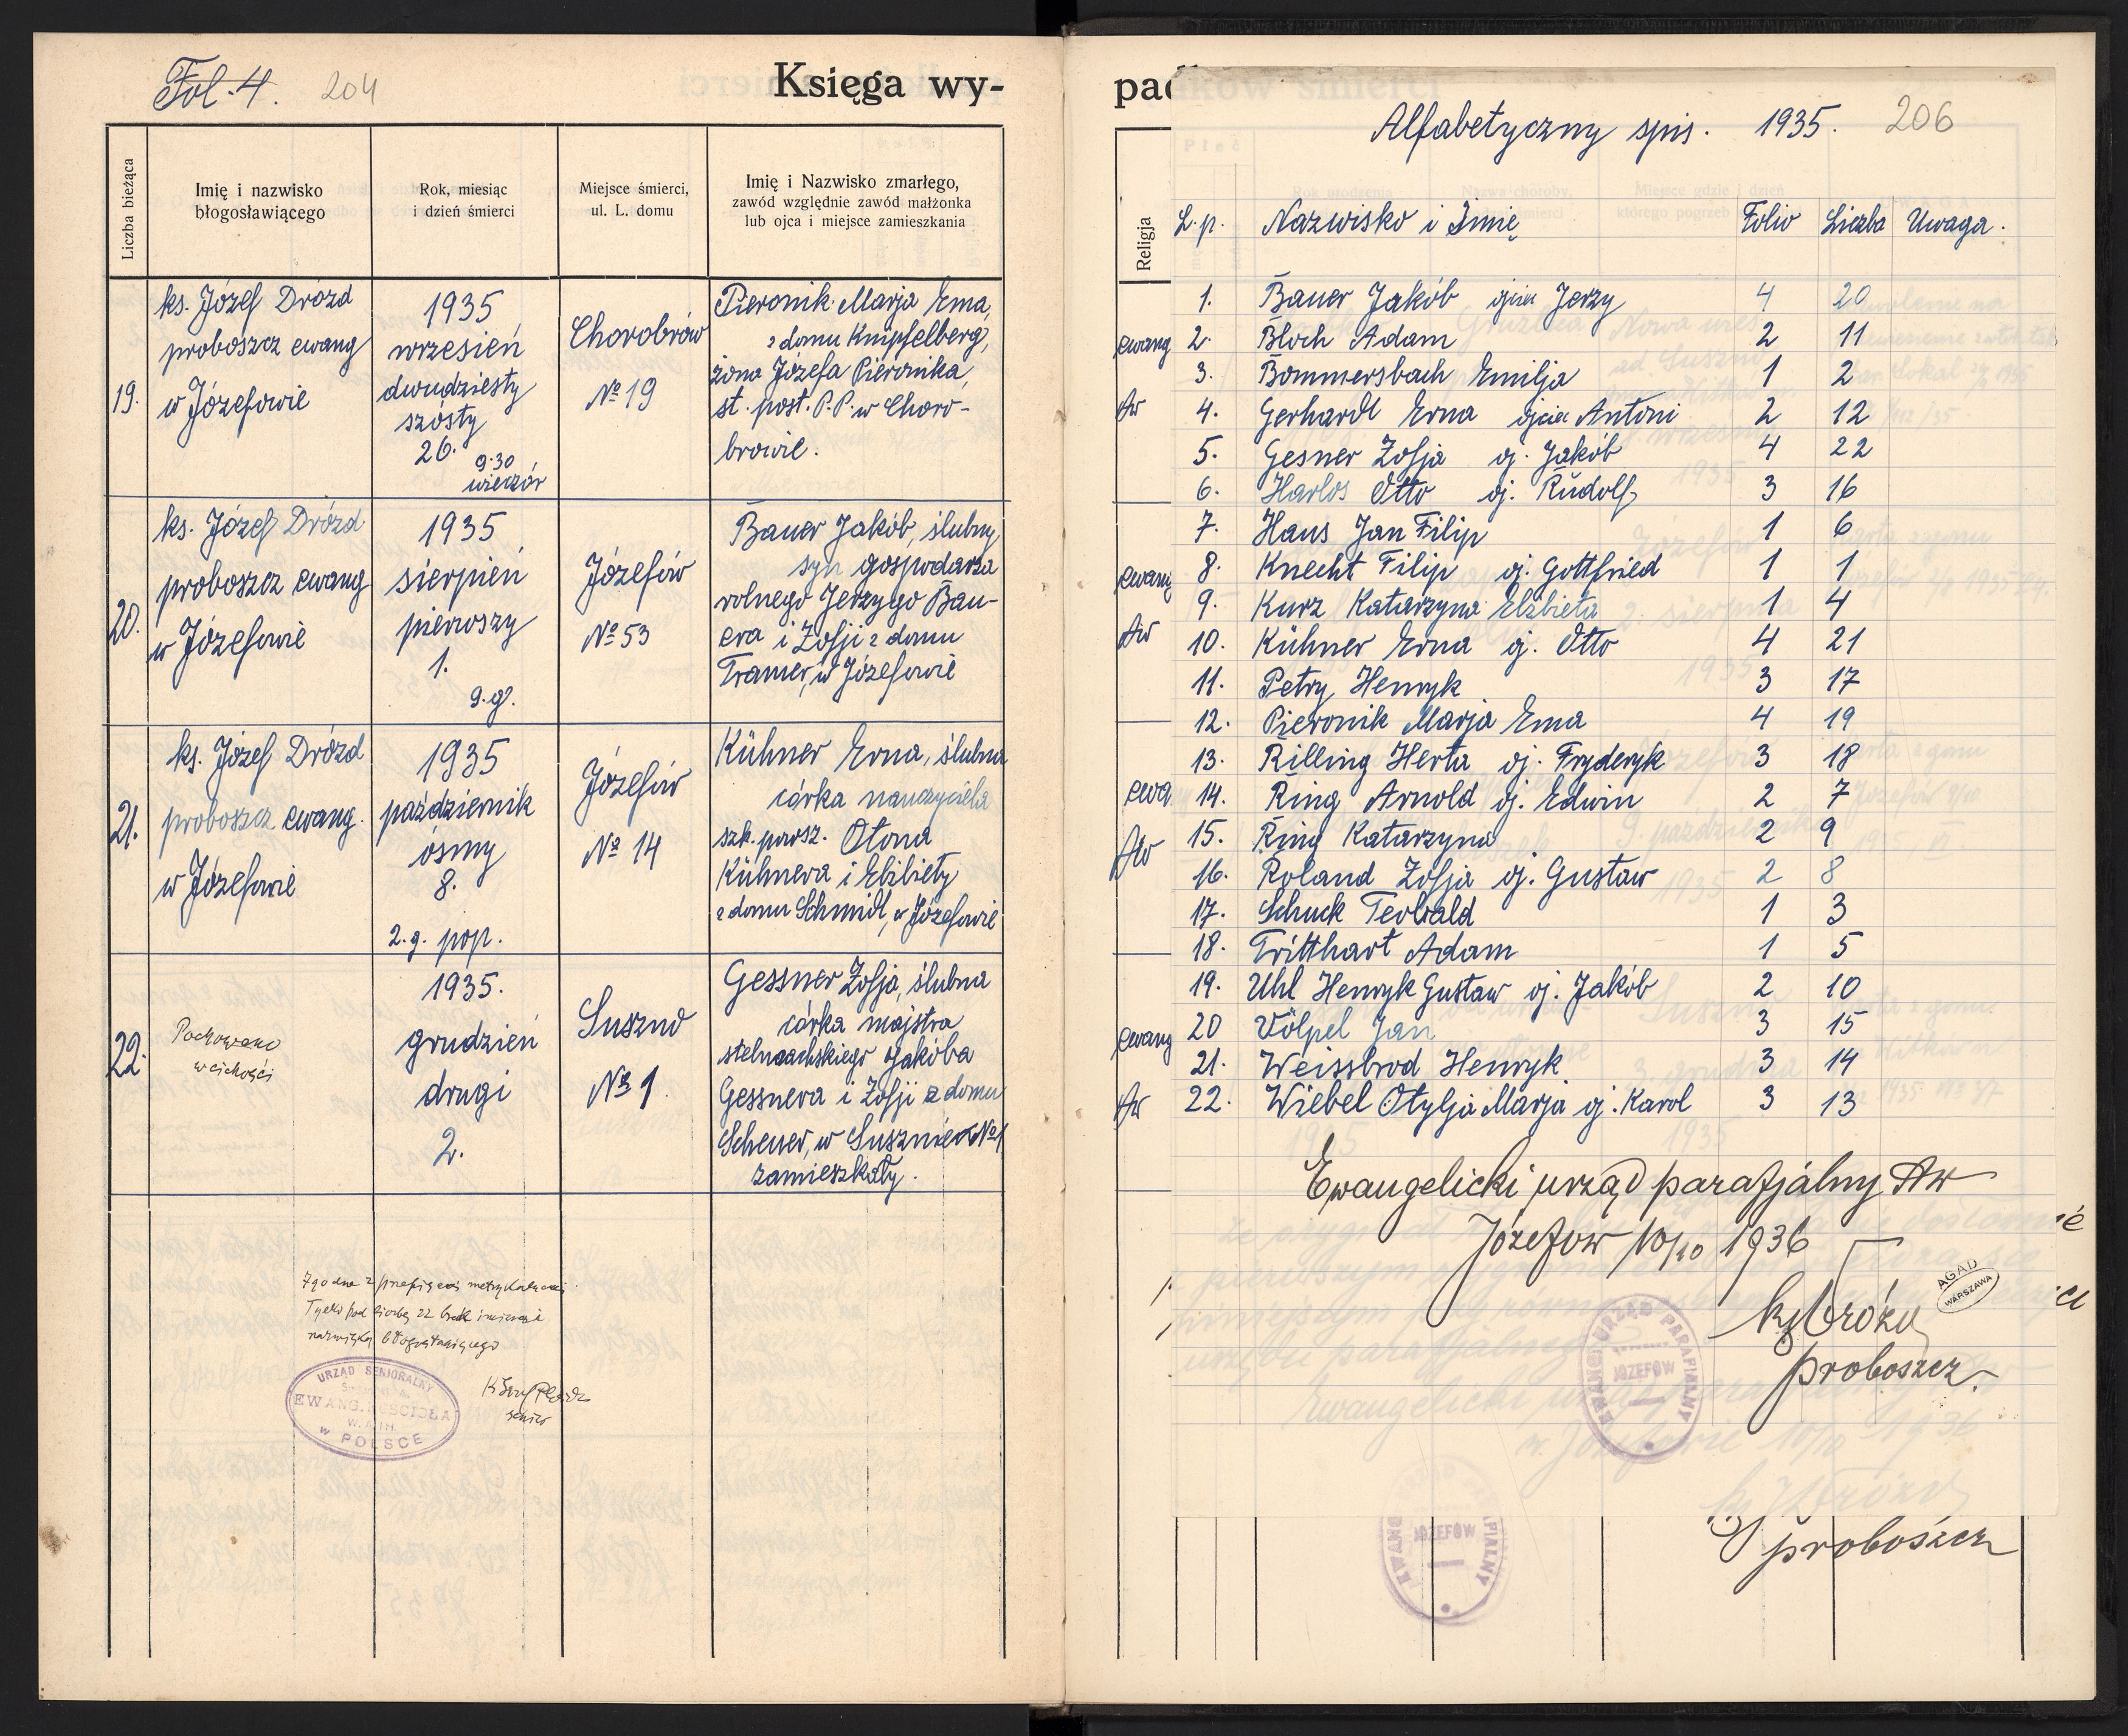 Fol. 4. 204
Księga wy-
Liczba bieżąca
Imię i nazwisko
błogosławiącego
Rok, miesiąc
i dzień śmierci
Miejsce śmierci,
ul. L. domu
Imię i Nazwisko zmarłego,
zawód względnie zawód małżonka
lub ojca i miejsce zamieszkania
19.
ks. Józef Drózd
proboszcz ewang
w Józefowie
1935
wrzesień
dwudziesty
szósty
26.
9.30
wieczór
Chorobrów
№ 19
Pieronik Marja Ema,
z domu Knipfelberg,
żona Józefa Pieronika,
st. post. P.P. w Choro-
browie.
20.
ks. Józef Drózd
proboszcz ewang
w Józefowie
1935
sierpień
pierwszy
1.
9.g.
Józefów
№ 53
Bauer Jakób, ślubny
syn gospodarza
rolnego Jerzygo Bau-
era i Zofji z domu
Tramer, w Józefowie
21.
ks. Józef Drózd
proboszcz ewang.
w Józefowie
1935
październik
ósmy
8.
2.g. pop.
Józefów
№ 14
Kühner Erna, ślubna
córka nauczyciela
szk. powsz. Otona
Kühnera i Elżbiety
z domu Schmidt, w Józefowie
22.
Pochowano
w cichości
1935.
grudzień
drugi
2.
Suszno
№ 1.
Gessner Zofja, ślubna
córka majstra
stelmachskiego Jakóba
Gessnera i Zofji z domu
Scheuer, w Susznie № 1
zamieszkały.
Zgodne z
Tylko pod liczbą 22 brak imienia i
nazwiska błogosławiącego
URZĄD SENIORALNY
EWANG. KOŚCIOŁA
W POLSCE
senior
pad
Religja
ewang
Aw
ewang
Aw
ewa
Aw
ewang
Aw
Alfabetyczny spis. 1935. 206
L.p. Nazwisko i Imię Folio Liczba Uwaga.
1. Bauer Jakób ojciec Jerzy 4 20
2. Bloch Adam 2 11
3. Bommersbach Emilja 1 2
4. Gerhardt Erna ojciec Antoni 2 12
5. Gesner Zofja oj. Jakób 4 22
6. Harlos Otto oj. Rudolf 3 16
7. Haus Jan Filip 1 6
8. Knecht Filip oj. Gottfried 1 1
9. Kurz Katarzyna Elżbieta 1 4
10. Kühner Erna oj. Otto 4 21
11. Petry Henryk 3 17
12. Pieronik Marja Ema 4 19
13. Rilling Herta oj. Fryderyk 3 18
14. Ring Arnold oj. Edwin 2 7
15. Ring Katarzyna 2 9
16. Roland Zofja oj. Gustaw 2 8
17. Schuck Teobald 1 3
18. Tritthart Adam 1 5
19. Uhl Henryk Gustaw oj. Jakób 2 10
20 Völpel Jan 3 15
21. Weissbrod Henryk 3 14
22. Wiebel Otylja Marja oj. Karol 3 13
Ewangelicki urząd parafjalny Aw
Józefow 10/10 1936
ks Drózd
proboszcz.
AGAD
WARSZAWA
EWANG. URZĄD PARAFIALNY
JÓZEFÓW
JÓZEFÓW
proboszcz